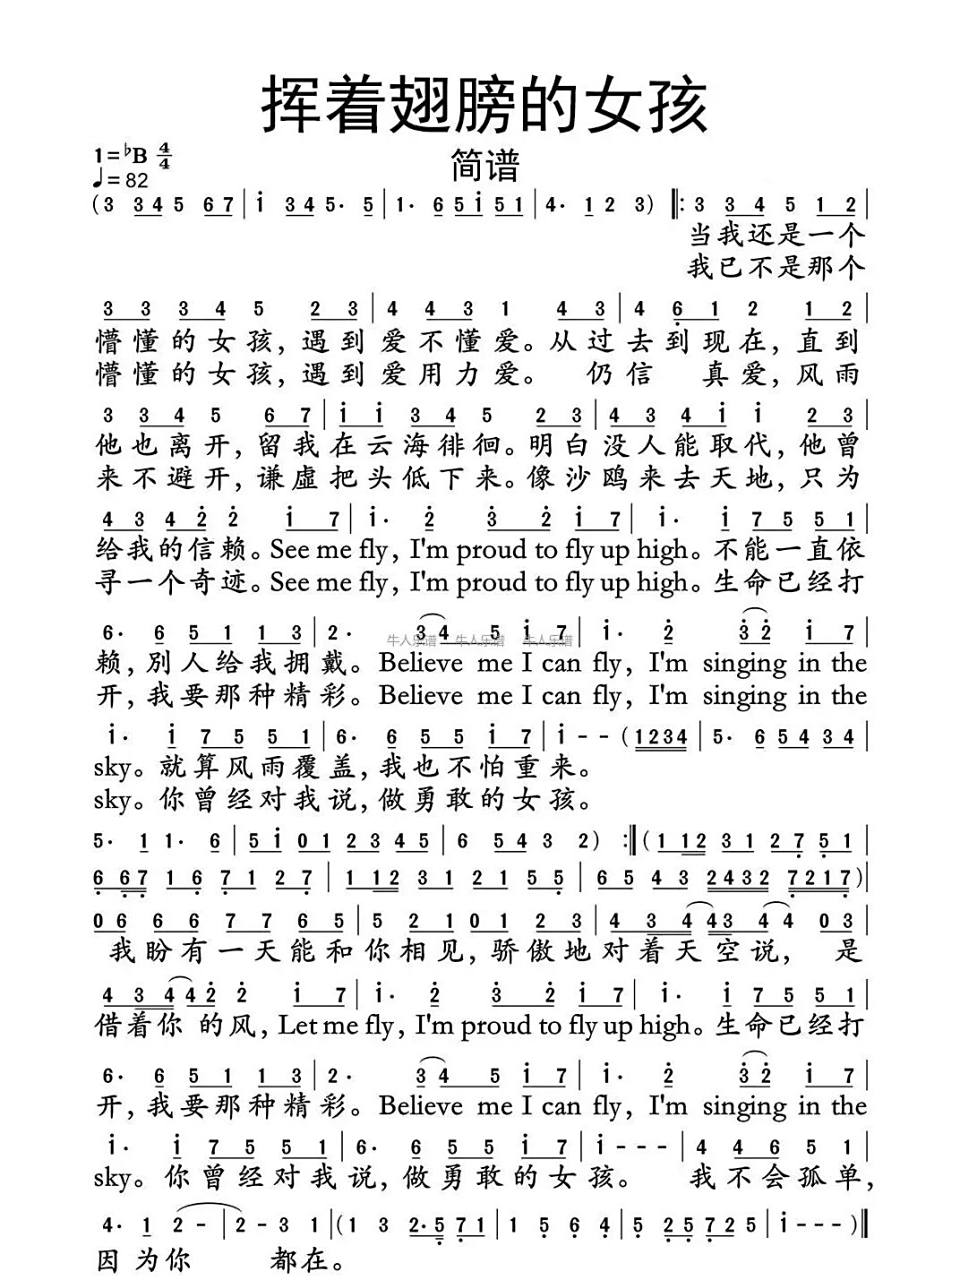 挥着翅膀的女孩
简谱
1=♭B 4/4
♩=82
(3 34 5 67 | i 34 5· 5 | 1· 6 5 i 5 1 | 4· 1 2 3) ‖: 3 3 4 5 1 2 |
当我还是一个
我已不是那个
3 3 3 4 5 2 3 | 4 4 3 1 4 3 | 4 6 1 2 1 2 |
懵懂的女孩,遇到爱不懂爱。从过去到现在,直到
懵懂的女孩,遇到爱用力爱。 仍信 真爱,风雨
3 3 4 5 6 7 | i i 3 4 5 2 3 | 4 3 4 i i 2 3 |
他也离开,留我在云海徘徊。明白没人能取代,他曾
来不避开,谦虚把头低下来。像沙鸥来去天地,只为
4 3 4 2 2 i 7 | i· 2 3 2 i 7 | i· i 7 5 5 1 |
给我的信赖。See me fly, I'm proud to fly up high。不能一直依
寻一个奇迹。See me fly, I'm proud to fly up high。生命已经打
6· 6 5 1 1 3 | 2· 3 4 5 i 7 | i· 2 3 2 i 7 |
牛人乐谱 牛人乐谱 牛人乐谱
赖,別人给我拥戴。Believe me I can fly, I'm singing in the
开,我要那种精彩。Believe me I can fly, I'm singing in the
i· i 7 5 5 1 | 6· 6 5 5 i 7 | i - - (1234 | 5· 6 5 4 3 4 |
sky。就算风雨覆盖,我也不怕重来。
sky。你曾经对我说,做勇敢的女孩。
5· 1 1· 6 | 5 i 0 1 2 3 4 5 | 6 5 4 3 2) :‖ (1 12 3 1 2 7 5 1 |
6 67 1 6 7 1 2 7 | 1 12 3 1 2 1 5 5 | 6 5 4 3 2432 7217) |
0 6 6 6 7 7 6 5 | 5 2 1 0 1 2 3 | 4 3 4 43 4 4 0 3 |
我盼有一天能和你相见,骄傲地对着天空说, 是
4 3 4 4 2 2 i 7 | i· 2 3 2 i 7 | i· i 7 5 5 1 |
借着你 的风,Let me fly, I'm proud to fly up high。生命已经打
6· 6 5 1 1 3 | 2· 3 4 5 i 7 | i· 2 3 2 i 7 |
开,我要那种精彩。Believe me I can fly, I'm singing in the
i· i 7 5 5 1 | 6· 6 5 5 i 7 | i - - - | 4 4 6 5 1 |
sky。你曾经对我说,做勇敢的女孩。 我不会孤单,
4· 1 2 - | 2 - 3 1 | (1 3 2· 5 7 1 | 5 6 4 | 5 2 5 7 2 5 | i - - -) ‖
因为你 都在。